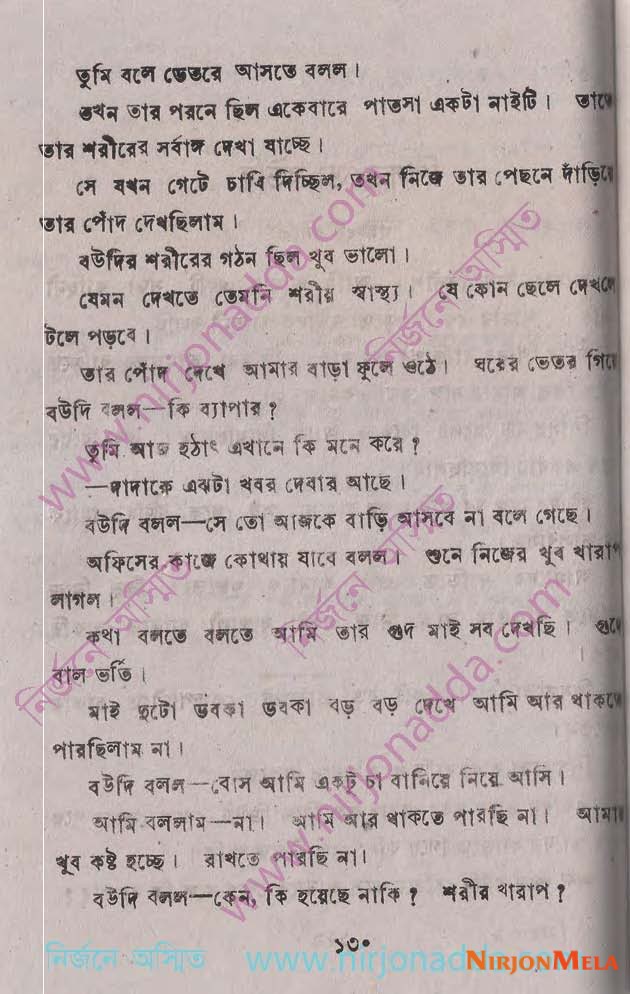 তুমি বলে ভেতরে আসতে বলল।
তখন তার পরনে ছিল একেবারে পাতলা একটা নাইটি। তাতে
তার শরীরের সর্বাঙ্গ দেখা যাচ্ছে।
সে যখন গেটে চাবি দিচ্ছিল, তখন নিজে তার পেছনে দাঁড়িয়ে
তার পোঁদ দেখছিলাম।
বউদির শরীরের গঠন ছিল খুব ভালো।
যেমন দেখতে তেমনি শরীর স্বাস্থ্য। যে কোন ছেলে দেখলে
টলে পড়বে।
তার পোঁদ দেখে আমার বাড়া ফুলে ওঠে। ঘরের ভেতর গিয়ে
বউদি বলল—কি ব্যাপার?
তুমি আজ হঠাৎ এখানে কি মনে করে?
—দাদাকে একটা খবর দেবার আছে।
বউদি বলল—সে তো আজকে বাড়ি আসবে না বলে গেছে।
অফিসের কাজে কোথায় যাবে বলল। শুনে নিজের খুব খারাপ
লাগল।
কথা বলতে বলতে আমি তার গুদ মাই সব দেখছি। গুদে
বাল ভর্তি।
মাই দুটো ডবকা ডবকা বড় বড় দেখে আমি আর থাকতে
পারছিলাম না।
বউদি বলল—বোস আমি একটু চা বানিয়ে নিয়ে আসি।
আমি বললাম—না। আমি আর থাকতে পারছি না। আমার
খুব কষ্ট হচ্ছে। রাখতে পারছি না।
বউদি বলল—কেন, কি হয়েছে নাকি? শরীর খারাপ?
১৩০
নির্জনে অস্মিত www.nirjonadda.com
NIRJONMELA
www.nirjonadda.com
নির্জনে অস্মিত
নির্জনে অস্মিত
নির্জনে অস্মিত
www.nirjonadda.com